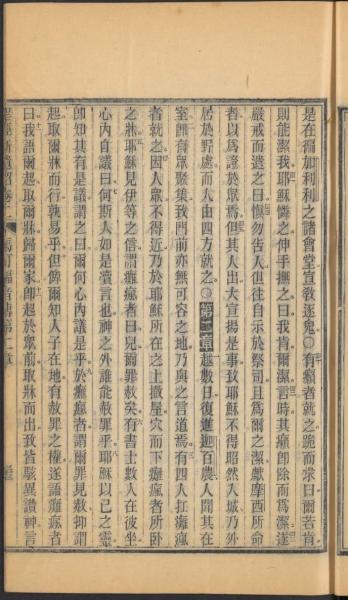 是在而加利利之諸會堂宣敎逐鬼○有癩者就之跪而求曰爾若肯
則能潔我耶穌憐之伸手撫之曰我肯爾潔言時其癩卽除而爲潔遂
嚴戒而遣之曰愼勿吿人但往自示於祭司且爲爾之潔獻摩西所命
者以爲證於衆焉但其人出大宣揚是事致耶穌不得昭然入城乃外
居於野處而人由四方就之○第二章越數日復進迦百農人聞其在
室卽有衆聚集致門前亦無可容之地乃與之言道焉有四人扛癱瘋
者就之因人衆不得近乃於耶穌所在之上撤屋穴而下癱瘋者所臥
之牀耶穌見伊等之信謂癱瘋者曰兒爾罪赦矣有書士數人在彼坐
心內自議曰何斯人如是瀆言也神之外誰能赦罪乎耶穌以己之靈
卽知其有是議謂之曰爾何心內議是乎於癱瘋者謂爾罪見赦抑謂
起取爾牀而行孰易乎但俾爾知人子在地有赦罪之權遂語癱瘋者
曰我語爾起取爾牀歸爾家卽起於衆前取牀而出我皆駭異讚神言
馬可福音傳第二章